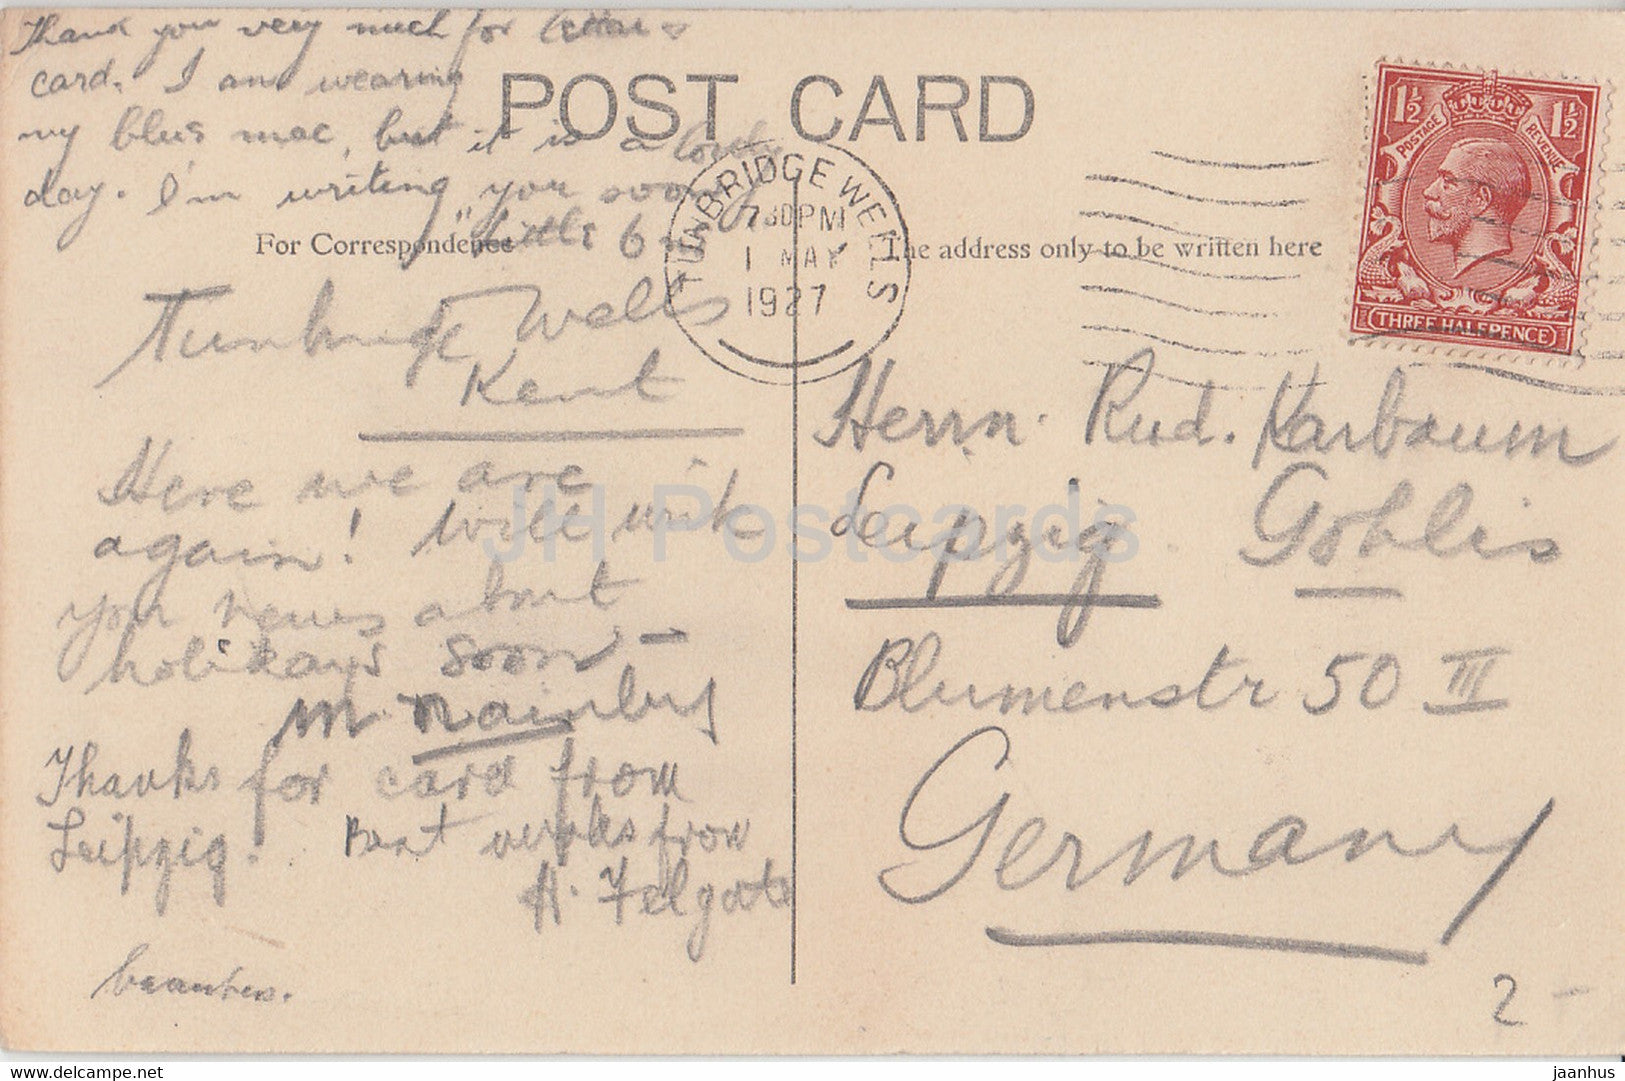 Thank you very much for letter &
card. I am wearing
my blue mac, but it is a lovely
day. I'm writing you soon
"Little
POST CARD
For Correspondence
The address only to be written here
TUNBRIDGE WELLS
7 30 PM
1 MAY
1927
1½ 1½
POSTAGE REVENUE
THREE HALFPENCE
Tunbridge Wells
Kent
Here we are
again! Will write
you news about
holidays soon —
M
Thanks for card from
Leipzig. Best from
H. Felgate
Herrn. Rud. Karbaum
Leipzig Gohlis
Blumenstr 50 III
Germany
2 –
JH Postcards
delcampe.net
jaanhus